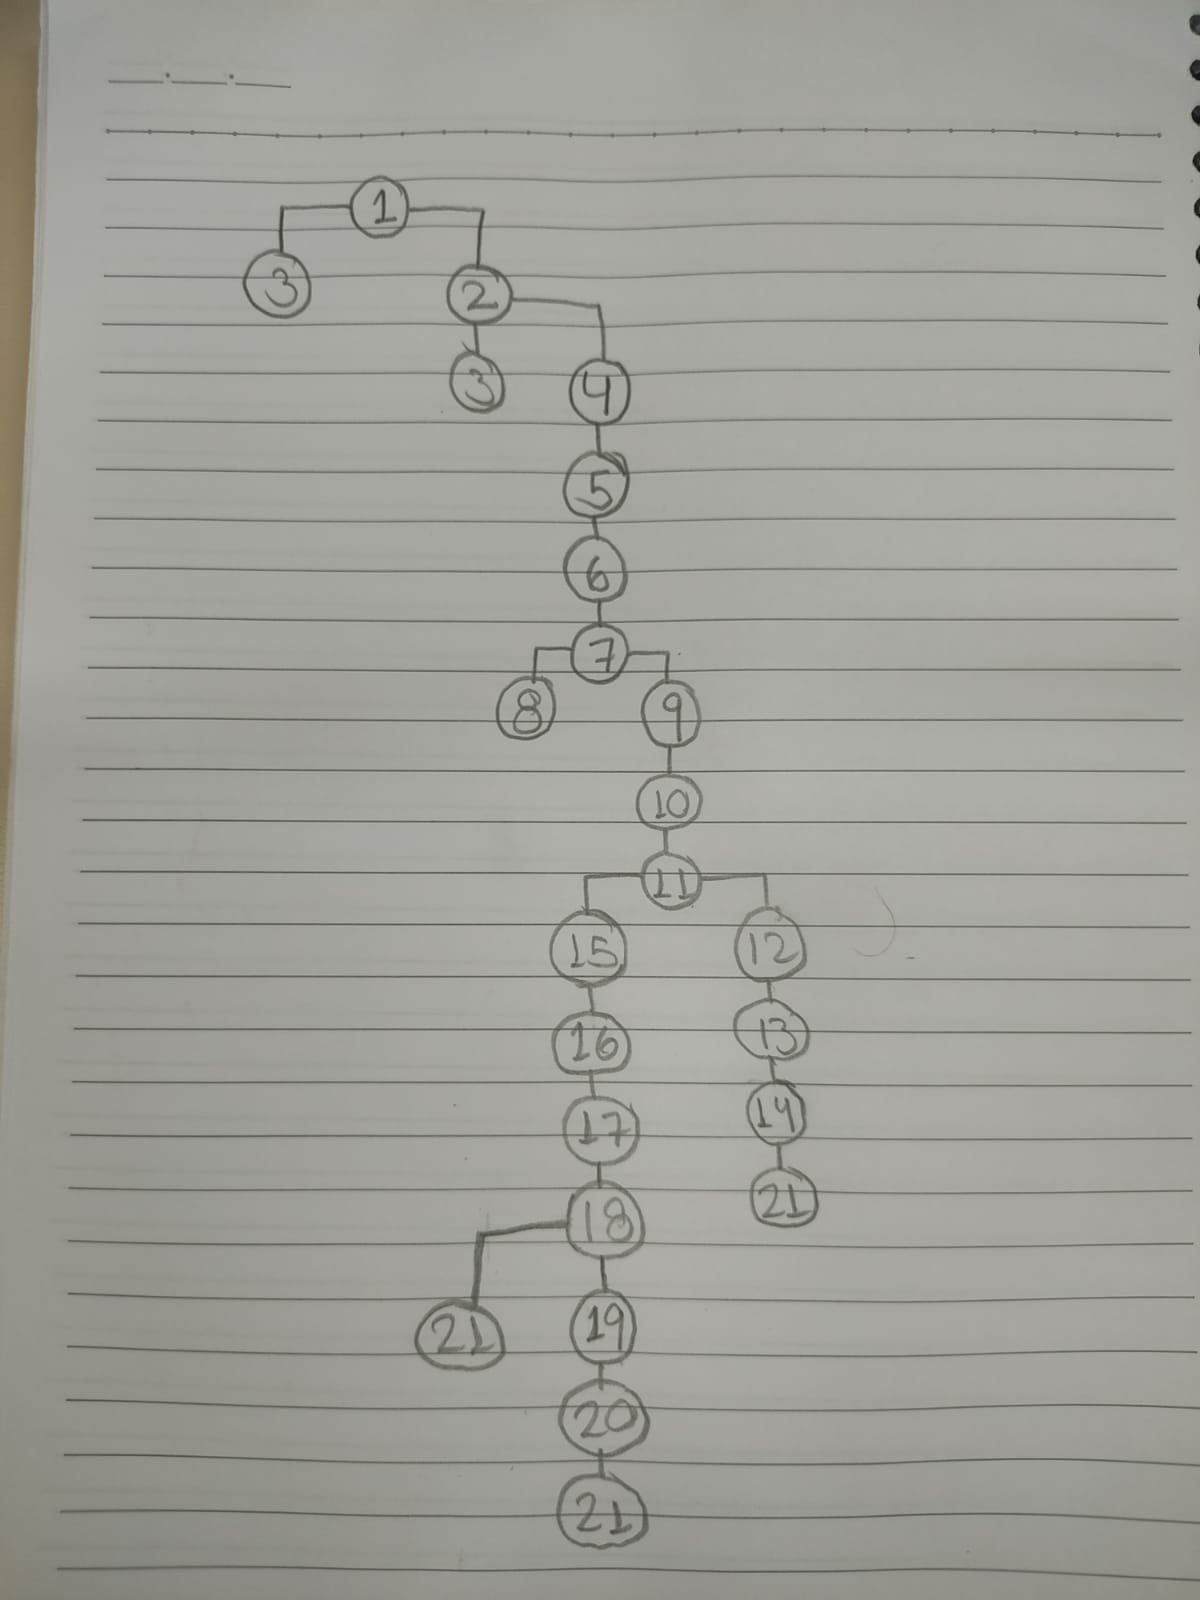 1
3 2
3 4
5
6
7
8 9
10
11
15 12
16 13
17 14
18 21
21 19
20
21